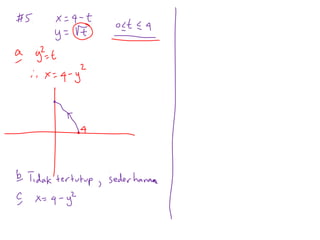 #5 x = 4 - t
y = √t 0 ≤ t ≤ 4
a y² = t
∴ x = 4 - y²
4
b Tidak tertutup, sederhana
c x = 4 - y²